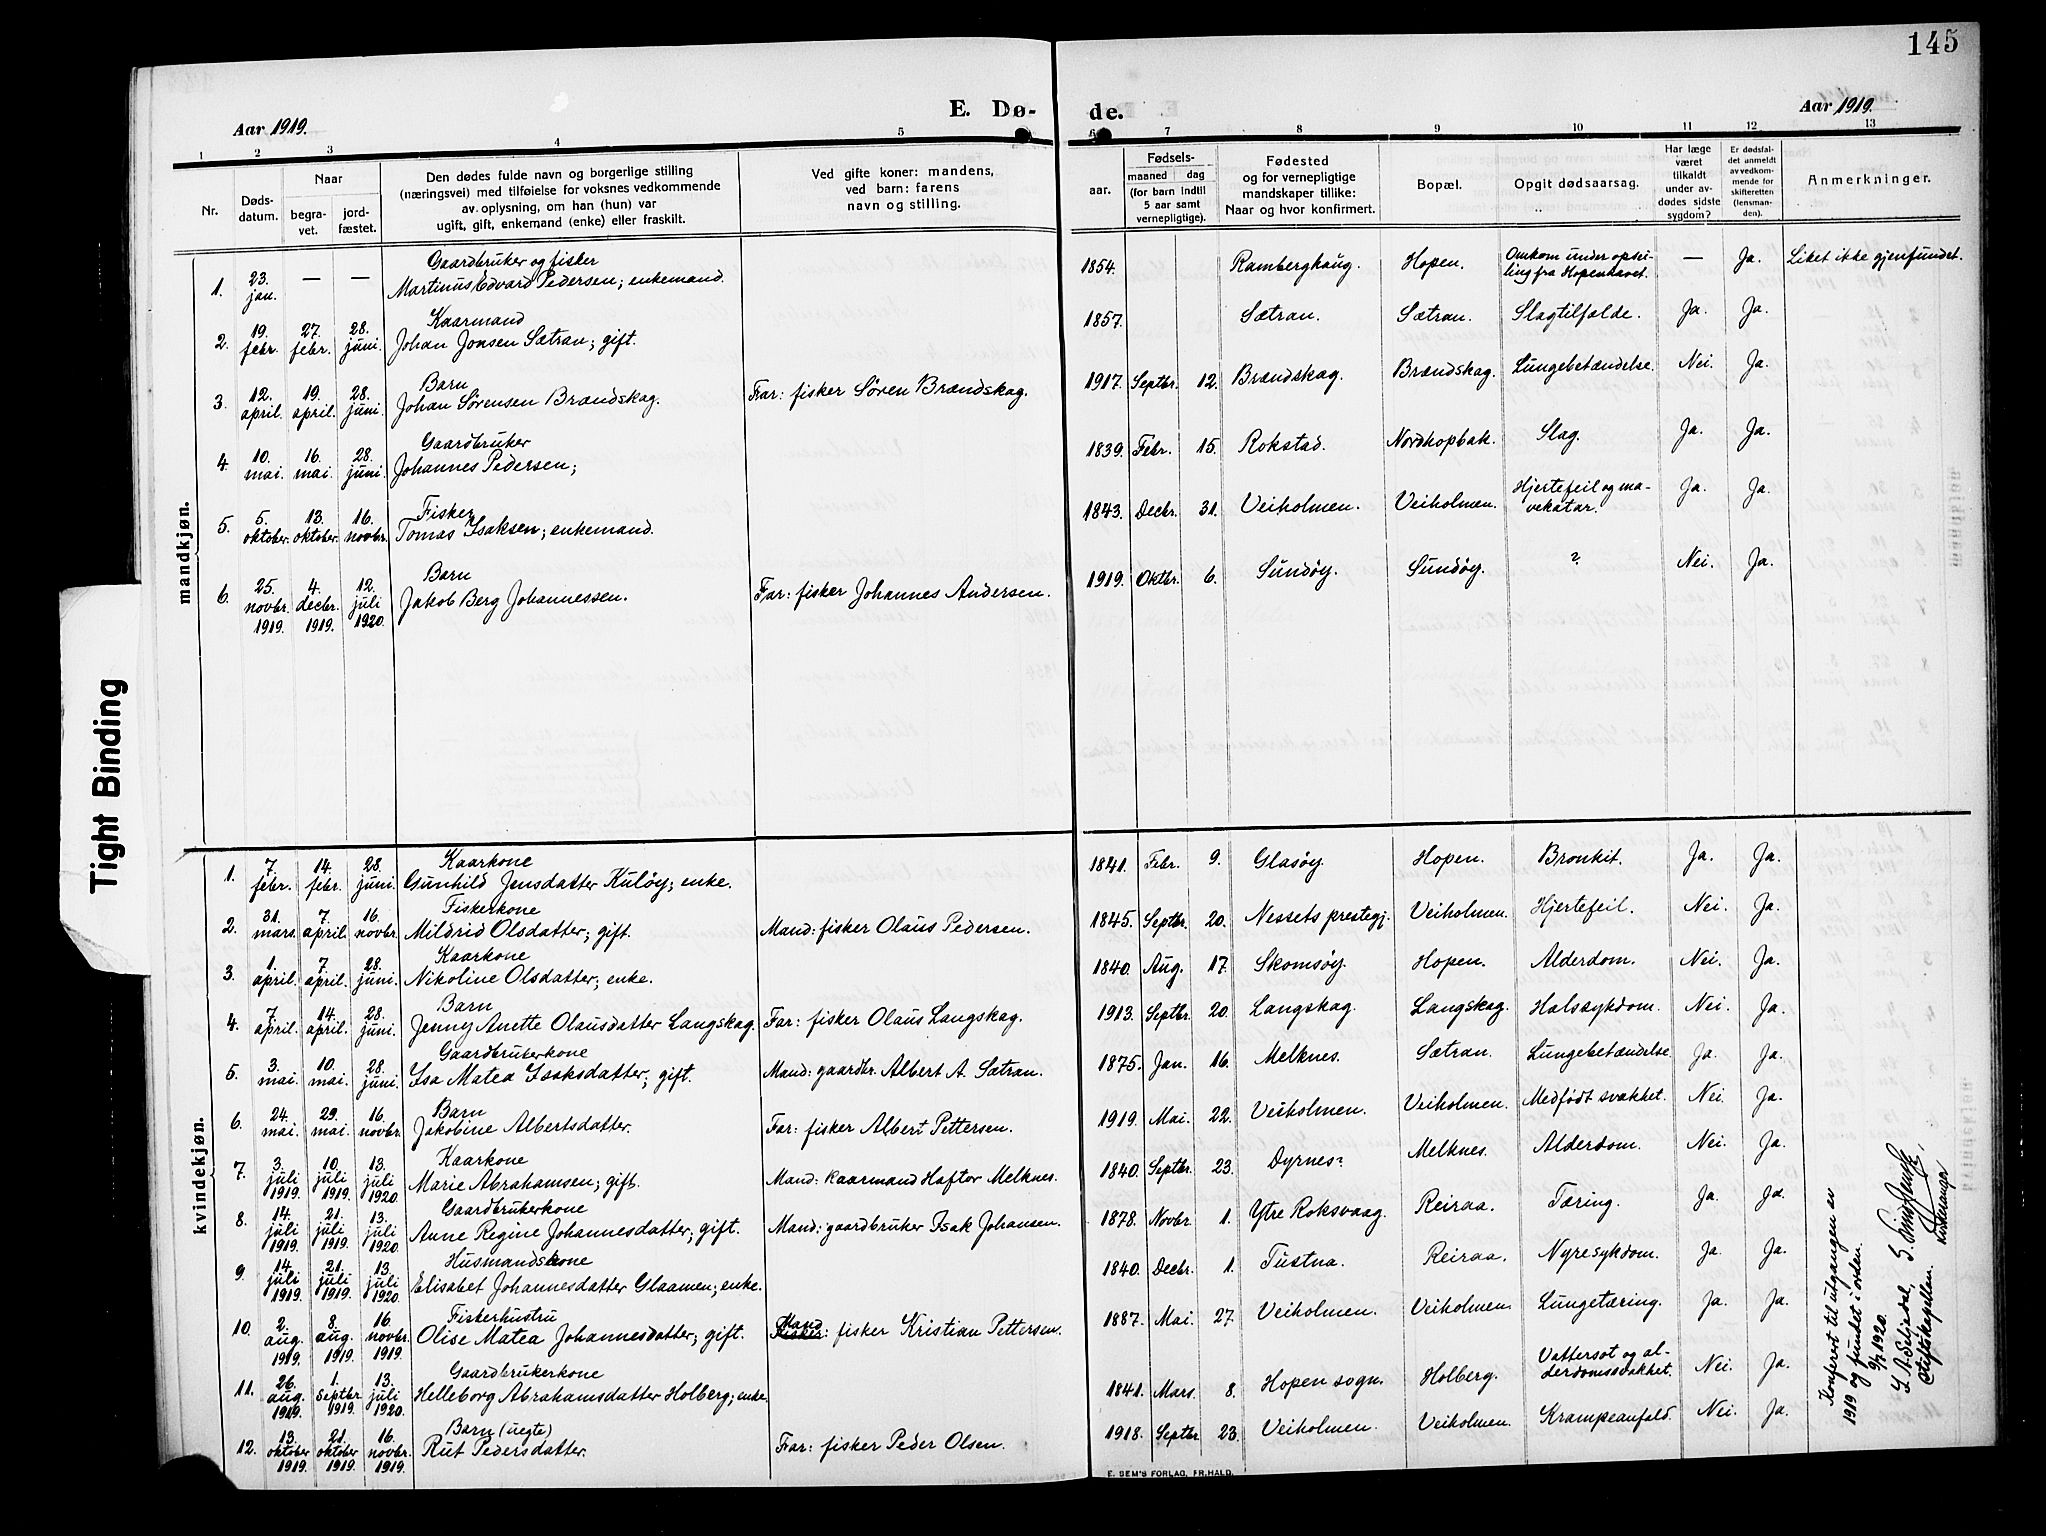 145
E. Dø-
de.
Aar 1919.
Aar 1919.
1 2 3 4 5 6 7 8 9 10 11 12 13
Nr.
Døds-
datum.
Naar
begra-
vet.
jord-
fæstet.
Den dødes fulde navn og borgerlige stilling
(næringsvei) med tilføielse for voksnes vedkommende
av oplysning, om han (hun) var
ugift, gift, enkemand (enke) eller fraskilt.
Ved gifte koner: mandens,
ved barn: farens
navn og stilling.
aar.
Fødsels-
maaned dag
(for barn indtil
5 aar samt
vernepligtige).
Fødested
og for vernepligtige
mandskaper tillike:
Naar og hvor konfirmert.
Bopæl.
Opgit dødsaarsag.
Har læge
været
tilkaldt
under av-
dødes sidste
sygdom?
Er dødsfal-
det anmeldt
av vedkom-
mende for
skifteretten
(lensman-
den).
Anmerkninger.
mandkjøn.
Gaardbruker og fisker
1. 23. jan. — — Martinus Edvard Pedersen; enkemand. 1854. Ramberghaug. Hopen. Omkom under opsei-
ling fra Hopenhavet. — Ja. Liket ikke gjenfundet.
Kaarmand
2. 19. febr. 27. febr. 28. juni. Johan Jonsen Sætran; gift. 1857. Sætran. Sætran. Slagtilfælde. Ja. Ja.
Barn
3. 12. april. 19. april. 28. juni. Johan Sørensen Brændskag. Far: fisker Søren Brændskag. 1917. Septbr. 12. Brændskag. Brændskag. Lungebetændelse. Nei. Ja.
Gaardbruker
4. 10. mai. 16. mai. 28. juni. Johannes Pedersen; 1839. Febr. 15. Rokstad. Nordhopbak. Slag. Ja. Ja.
Fisker
5. 5. oktober. 13. oktober. 16. novbr. Tomas Isaksen; enkemand. 1843. Decbr. 31. Veiholmen. Veiholmen. Hjertefeil og ma-
vekatar. Ja. Ja.
Barn
6. 25. novbr. 1919. 4. decbr. 1919. 12. juli 1920. Jakob Berg Johannessen. Far: fisker Johannes Andersen. 1919. Oktbr. 6. Sundøy. Sundøy. ? Nei. Ja.
kvindekjøn.
Kaarkone
1. 7. febr. 14. febr. 28. juni. Gunhild Jensdatter Kuløy; enke. 1841. Febr. 9. Glasøy. Hopen. Bronkit. Ja. Ja.
Fiskerkone
2. 31. mars. 7. april. 16. novbr. Mildrid Olsdatter; gift. Mand: fisker Olaus Pedersen. 1845. Septbr. 20. Nessets prestegj. Veiholmen. Hjertefeil. Nei. Ja.
Kaarkone
3. 1. april. 7. april. 28. juni. Nikoline Olsdatter; enke. 1840. Aug. 17. Skomsøy. Hopen. Alderdom. Nei. Ja.
Barn
4. 7. april. 14. april. 28. juni. Jenny Anette Olausdatter Langskag. Far: fisker Olaus Langskag. 1913. Septbr. 20. Langskag. Langskag. Halssykdom. Nei. Ja.
Gaardbrukerkone
5. 3. mai. 10. mai. 28. juni. Isa Matea Isaksdatter; gift. Mand: gaardbr. Albert A. Sætran. 1875. Jan. 16. Melknes. Sætran. Lungebetændelse. Ja. Ja.
Barn
6. 24. mai. 29. mai. 16. novbr. Jakobine Albertsdatter. Far: fisker Albert Pettersen. 1919. Mai. 22. Veiholmen. Veiholmen. Medfødt svakhet. Nei. Ja.
Kaarkone
7. 3. juli 1919. 10. juli 1919. 13. juli 1920. Marie Abrahamsen; gift. Mand: kaarmand Haftor Melknes. 1840. Septbr. 23. Dyrnes? Melknes. Alderdom. Nei. Ja.
Gaardbrukerkone
8. 14. juli 1919. 21. juli 1919. 13. juli 1920. Anne Regine Johannesdatter; gift. Mand: gaardbruker Isak Johansen. 1878. Novbr. 1. Ytre Roksvaag. Reiraa. Tæring. Ja. Ja.
Husmandskone
9. 14. juli 1919. 21. juli 1919. 13. juli 1920. Elisabet Johannesdatter Glaamen; enke. 1840. Decbr. 1. Tustna. Reiraa. Nyresykdom. Ja. Ja.
Fiskerhustru
10. 2. aug. 1919. 8. aug. 1919. 16. novbr. 1919. Olise Matea Johannesdatter; gift. Mand: fisker Kristian Pettersen. 1887. Mai. 27. Veiholmen. Veiholmen. Lungetæring. Ja. Ja.
Gaardbrukerkone
11. 26. aug. 1919. 1. septbr 1919. 13. juli 1920. Helleborg Abrahamsdatter Holberg; enke. 1841. Mars. 8. Hopen sogn. Holberg. Vattersot og al-
derdomssvakhet. Nei. Ja.
Barn (uegte)
12. 13. oktober 1919. 21. oktober 1919. 16. novbr. 1919. Rut Pedersdatter. Far: fisker Peder Olsen. 1918. Septbr 23. Veiholmen. Veiholmen. Krampeanfald. Nei. Ja.
Konferert til utgangen av
1919 og fundet i orden.
9/7 1920.
Stiftskapellan.
Kirkesanger
E. SEM'S FORLAG, FR.HALD.
Tight Binding